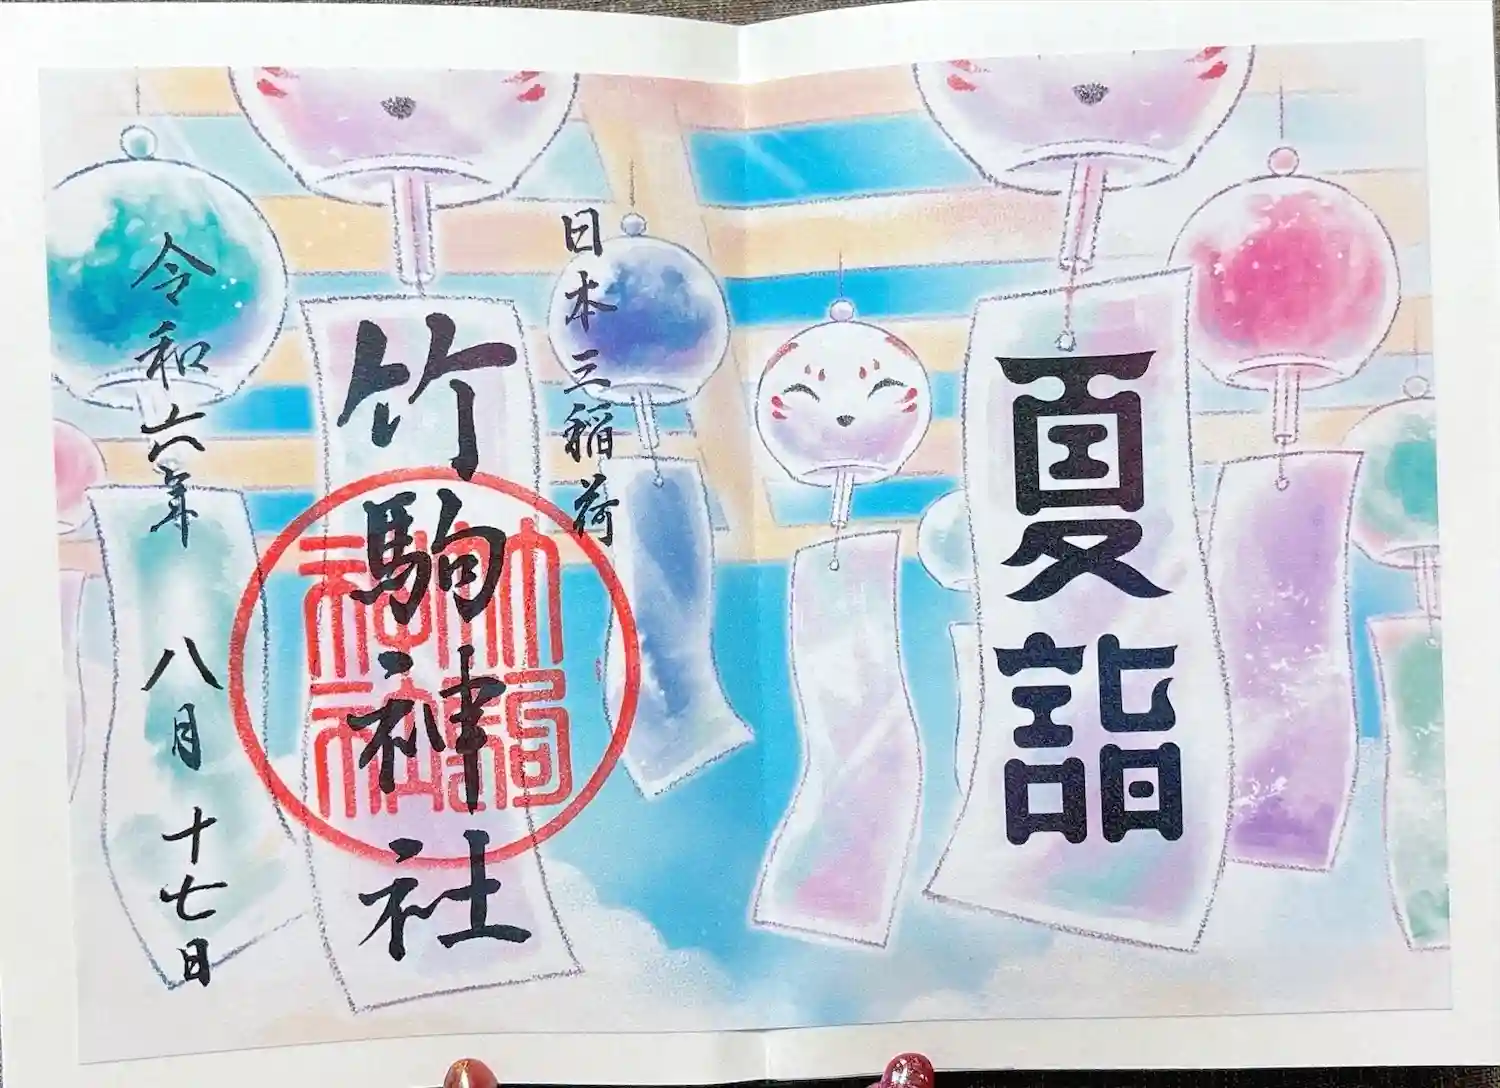 夏詣
日本三稲荷
竹駒神社
竹駒神社
令和六年 八月 十七日